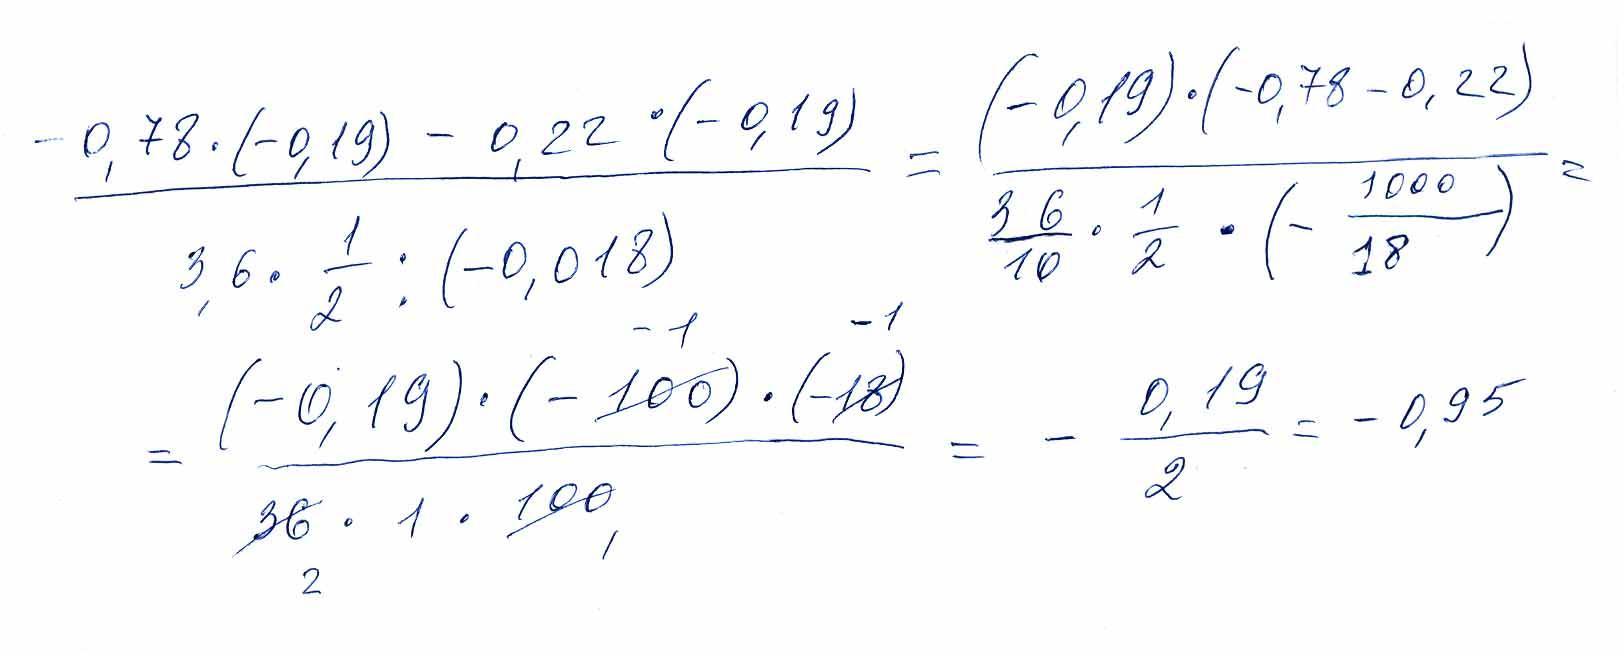 -0,78·(-0,19) - 0,22·(-0,19) / 3,6·1/2:(-0,018) = (-0,19)·(-0,78-0,22) / 36/10·1/2·(-1000/18) =
-1 -1
= (-0,19)·(-100)·(-18) / 36·1·100, = -0,19/2 = -0,95
2